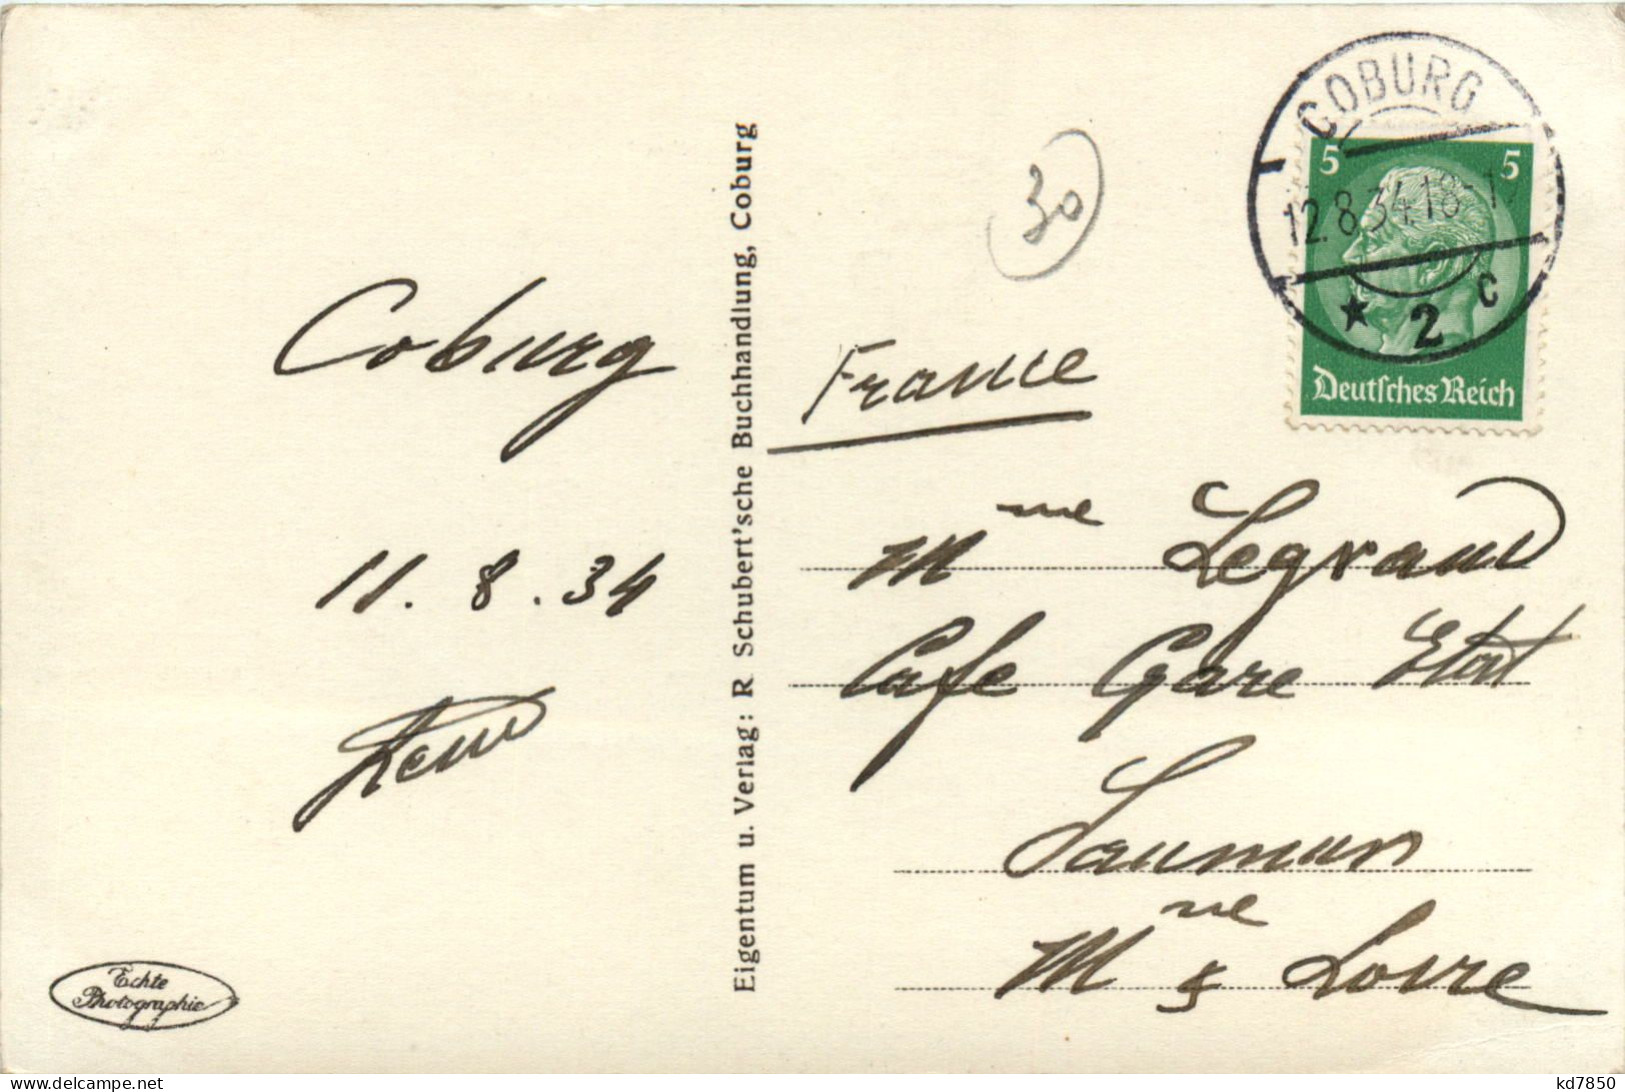 COBURG
5 5
12.8.34.18-19
* 2 c
Deutsches Reich
30
Coburg
11. 8. 34
France
Mme Legrand
Cafe Gare Etat
Saumur
Mne & Loire
Eigentum u. Verlag: R. Schubert'sche Buchhandlung, Coburg
Echte
Photographie
kd7850